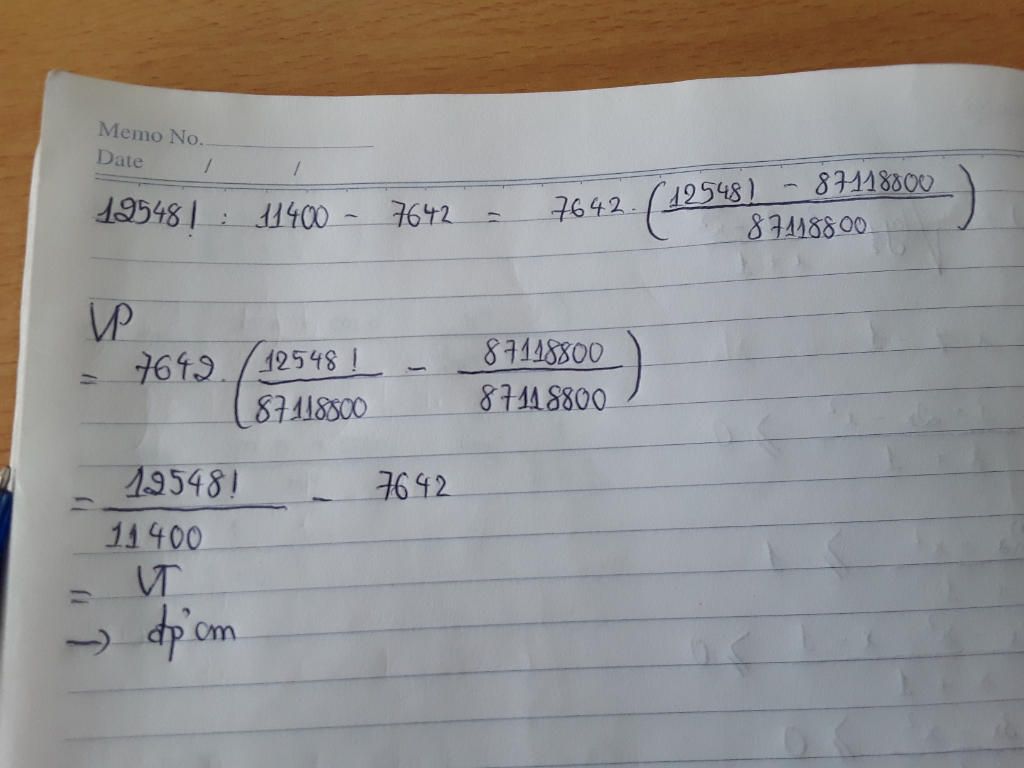 Memo No.
Date / /
12548! : 11400 - 7642 = 7642. (12548! - 87118800 / 87118800)
VP
= 7642. (12548! / 87118800 - 87118800 / 87118800)
= 12548! / 11400 - 7642
= VT
→ đpcm